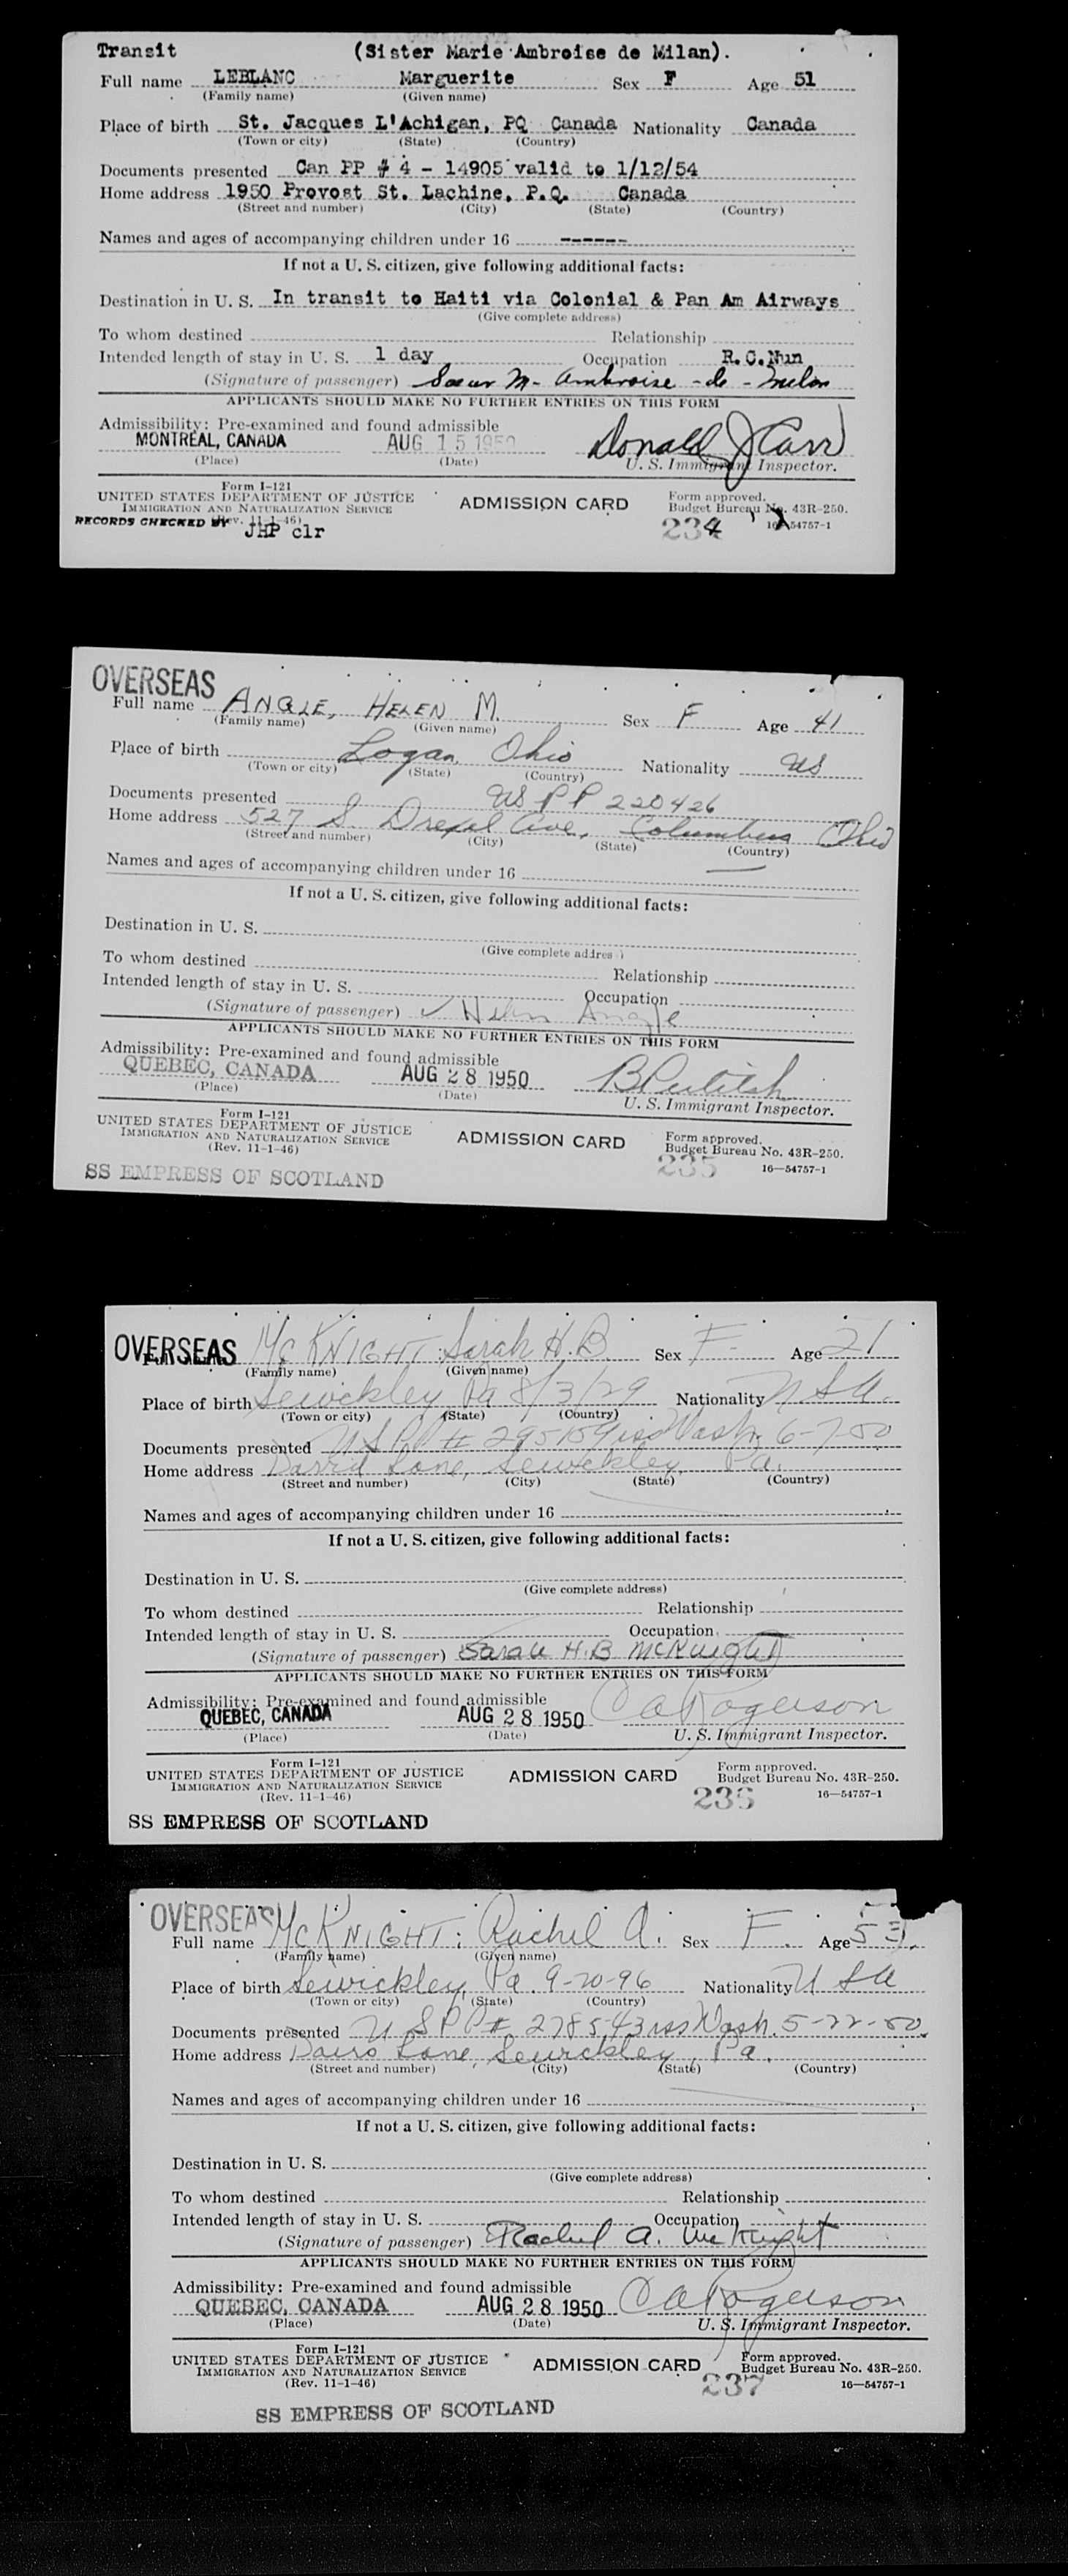 Transit (Sister Marie Ambroise de Milan).
Full name LEBLANC Marguerite Sex F Age 51
(Family name) (Given name)
Place of birth St. Jacques L'Achigan, PQ Canada Nationality Canada
(Town or city) (State) (Country)
Documents presented Can PP # 4 - 14905 valid to 1/12/54
Home address 1950 Provost St. Lachine, P.Q. Canada
(Street and number) (City) (State) (Country)
Names and ages of accompanying children under 16 ------
If not a U. S. citizen, give following additional facts:
Destination in U. S. In transit to Haiti via Colonial & Pan Am Airways
(Give complete address)
To whom destined Relationship
Intended length of stay in U. S. 1 day Occupation R.C.Nun
(Signature of passenger) Soeur M- Ambroise - de - Milan
APPLICANTS SHOULD MAKE NO FURTHER ENTRIES ON THIS FORM
Admissibility: Pre-examined and found admissible
MONTREAL, CANADA AUG 15 1950 Donald J Carr
(Place) (Date) U. S. Immigrant Inspector.
Form I-121
UNITED STATES DEPARTMENT OF JUSTICE ADMISSION CARD Form approved.
IMMIGRATION AND NATURALIZATION SERVICE Budget Bureau No. 43R-250.
(Rev. 11-1-46) 234 16-54757-1
RECORDS CHECKED BY JHP clr
OVERSEAS
Full name ANGLE, HELEN M. Sex F Age 41
(Family name) (Given name)
Place of birth Logan, Ohio Nationality US
(Town or city) (State) (Country)
Documents presented US PP 220426
Home address 527 S. Drexel Ave, Columbus Ohio
(Street and number) (City) (State) (Country)
Names and ages of accompanying children under 16 —
If not a U. S. citizen, give following additional facts:
Destination in U. S.
(Give complete address)
To whom destined Relationship
Intended length of stay in U. S. Occupation
(Signature of passenger) Helen Angle
APPLICANTS SHOULD MAKE NO FURTHER ENTRIES ON THIS FORM
Admissibility: Pre-examined and found admissible
QUEBEC, CANADA AUG 28 1950
(Place) (Date) U. S. Immigrant Inspector.
Form I-121
UNITED STATES DEPARTMENT OF JUSTICE ADMISSION CARD Form approved.
IMMIGRATION AND NATURALIZATION SERVICE Budget Bureau No. 43R-250.
(Rev. 11-1-46) 235 16—54757-1
SS EMPRESS OF SCOTLAND
OVERSEAS McKNIGHT: Sarah H.B Sex F. Age 21
(Family name) (Given name)
Place of birth Sewickley Pa 8/3/29 Nationality U.S.A.
(Town or city) (State) (Country)
Documents presented U S PP # 295159 iss Wash. 6-7-50
Home address Lane, Sewickley, Pa.
(Street and number) (City) (State) (Country)
Names and ages of accompanying children under 16
If not a U. S. citizen, give following additional facts:
Destination in U. S.
(Give complete address)
To whom destined Relationship
Intended length of stay in U. S. Occupation
(Signature of passenger) Sarah H.B McKnight
APPLICANTS SHOULD MAKE NO FURTHER ENTRIES ON THIS FORM
Admissibility: Pre-examined and found admissible
QUEBEC, CANADA AUG 28 1950 C A Rogerson
(Place) (Date) U. S. Immigrant Inspector.
Form I-121
UNITED STATES DEPARTMENT OF JUSTICE ADMISSION CARD Form approved.
IMMIGRATION AND NATURALIZATION SERVICE Budget Bureau No. 43R-250.
(Rev. 11-1-46) 236 16—54757-1
SS EMPRESS OF SCOTLAND
OVERSEAS
Full name McKNIGHT: Rachel A. Sex F. Age 53.
(Family name) (Given name)
Place of birth Sewickley, Pa. 9-20-96 Nationality U S A
(Town or city) (State) (Country)
Documents presented U S PP # 278543 iss Wash. 5-22-50.
Home address Lane, Sewickley, Pa.
(Street and number) (City) (State) (Country)
Names and ages of accompanying children under 16
If not a U. S. citizen, give following additional facts:
Destination in U. S.
(Give complete address)
To whom destined Relationship
Intended length of stay in U. S. Occupation
(Signature of passenger) Rachel A. McKnight
APPLICANTS SHOULD MAKE NO FURTHER ENTRIES ON THIS FORM
Admissibility: Pre-examined and found admissible
QUEBEC, CANADA AUG 28 1950 C A Rogerson
(Place) (Date) U. S. Immigrant Inspector.
Form I-121
UNITED STATES DEPARTMENT OF JUSTICE ADMISSION CARD Form approved.
IMMIGRATION AND NATURALIZATION SERVICE Budget Bureau No. 43R-250.
(Rev. 11-1-46) 237 16—54757-1
SS EMPRESS OF SCOTLAND